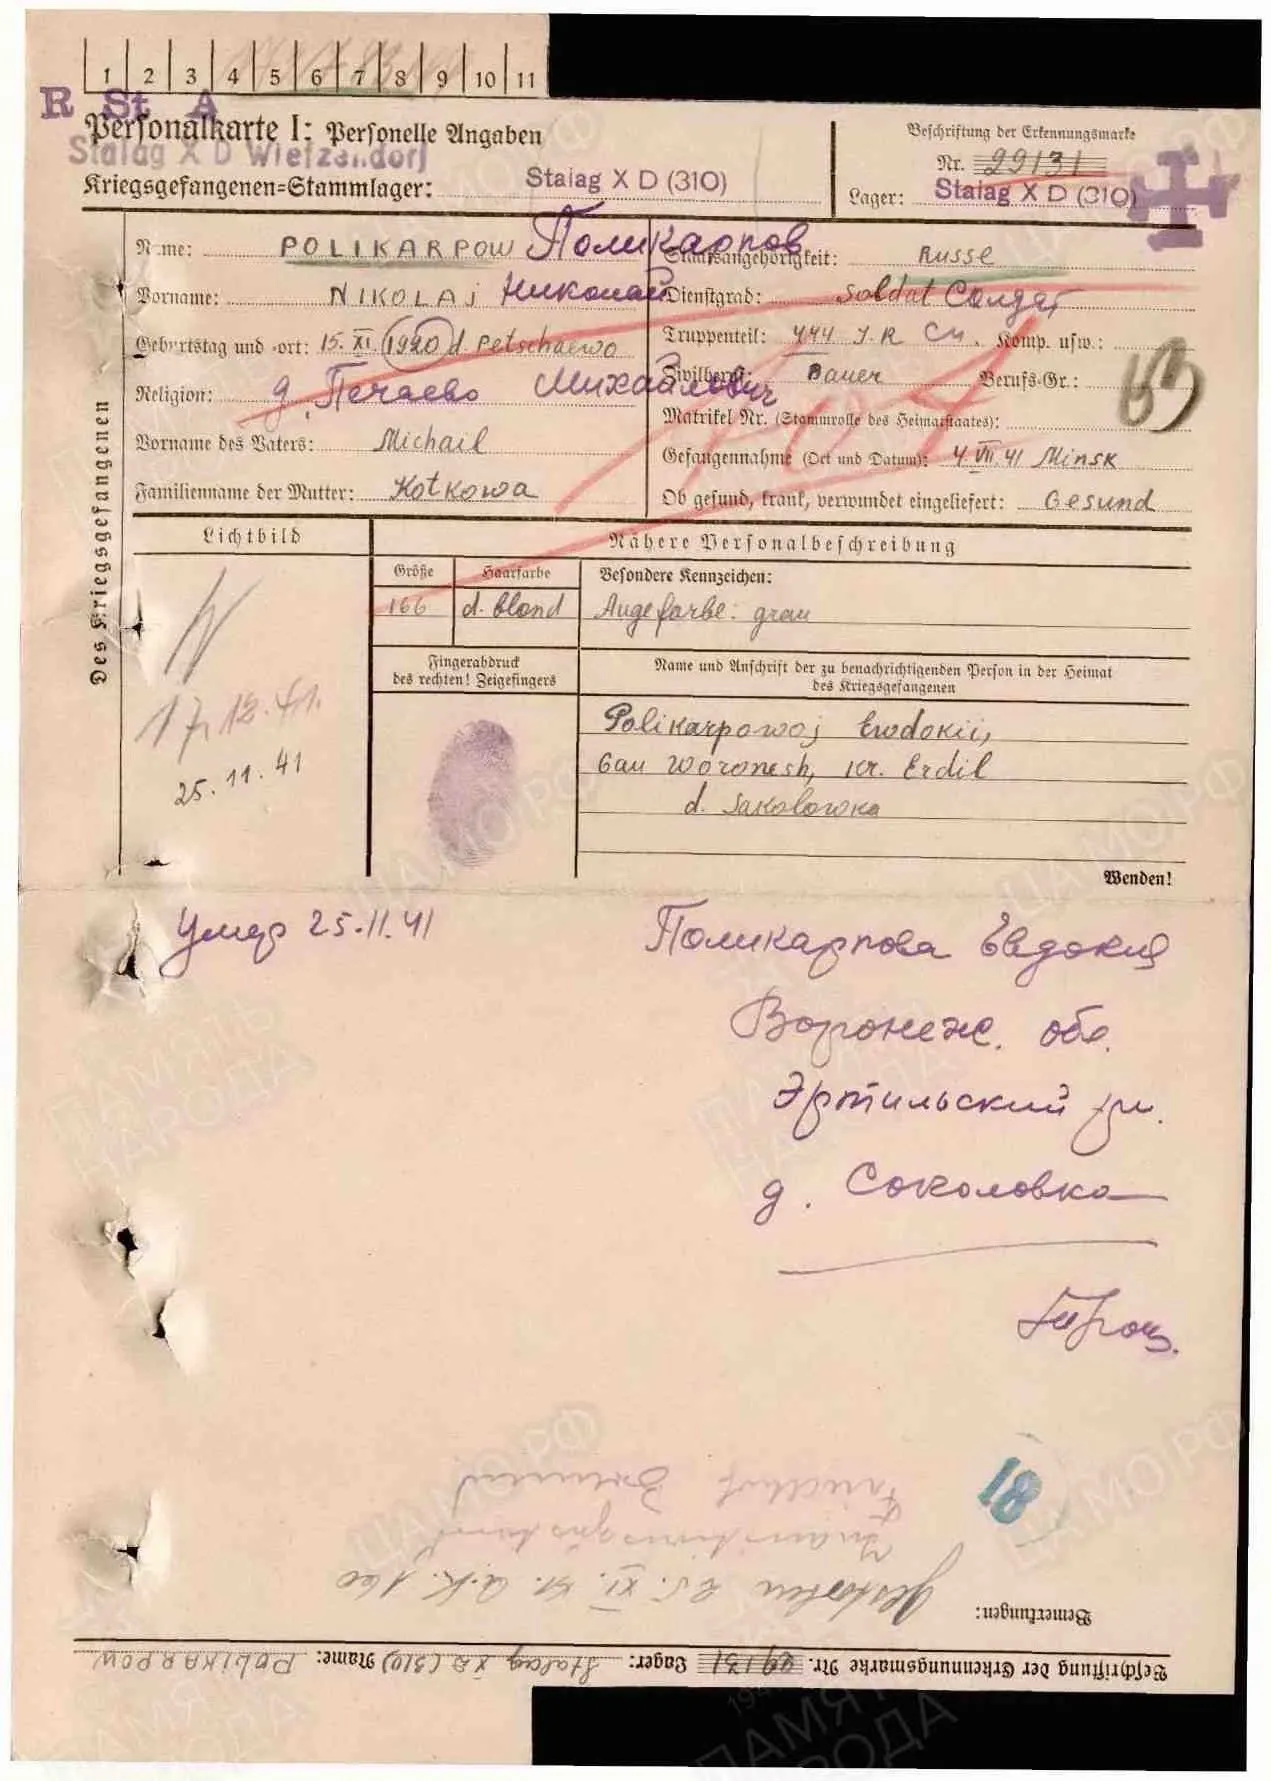 1 2 3 4 5 6 7 8 9 10 11
R St A
Personalkarte I: Personelle Angaben
Stalag X D Wietzendorf
Kriegsgefangenen=Stammlager: Stalag X D (310)
Beschriftung der Erkennungsmarke
Nr. 29131
Lager: Stalag X D (310)
Des Kriegsgefangenen
Name: POLIKARPOW Поликарпов
Vorname: NIKOLAJ Николай
Geburtstag und -ort: 15. XI. 1920 d. Petschaewo
Religion: д. Печаево Михайлович
Vorname des Vaters: Michail
Familienname der Mutter: Kotkowa
Staatsangehörigkeit: Russe
Dienstgrad: Soldat Солдат
Truppenteil: 444 J.R Komp. usw.:
Zivilberuf: Bauer Berufs-Gr.:
Matrikel Nr. (Stammrolle des Heimatstaates):
Gefangennahme (Ort und Datum): 4. VII. 41 Minsk
Ob gesund, krank, verwundet eingeliefert: Gesund
Lichtbild
17.12.41.
25.11.41
Nähere Personalbeschreibung
Größe Haarfarbe Besondere Kennzeichen:
166 d. blond Augefarbe: grau
Fingerabdruck
des rechten! Zeigefingers
Name und Anschrift der zu benachrichtigenden Person in der Heimat
des Kriegsgefangenen
Polikarpowoj Ewdokii,
Gau Woronesh, Kr. Erdil
d. Sakolowka
Wenden!
Умер 25.11.41
Поликарпова Евдокия
Воронеж. обл.
Эртильский
д. Соколовка
81
Friedhof
Gestorben 25. XI. 41.
Bemerkungen:
Beschriftung der Erkennungsmarke Nr. 29131 Lager: Stalag XD (310) Name: POLIKARPOW
ЦАМО РФ
ПАМЯТЬ
НАРОДА